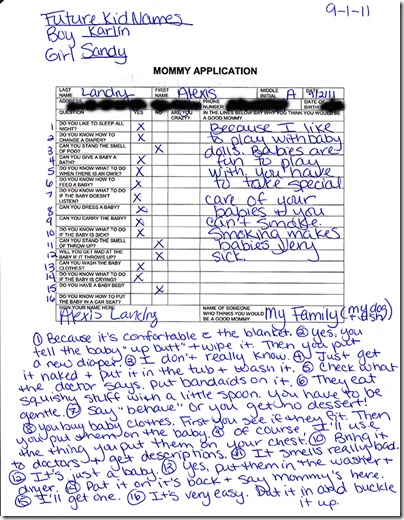 Future Kid Names
9-1-11
Boy Karlin
Girl Sandy
MOMMY APPLICATION
LAST NAME Landry FIRST NAME Alexis MIDDLE INITIAL A 9/2/11
ADDRESS PHONE NUMBER DATE OF BIRTH
QUESTION YES NO ARE YOU CRAZY? IN THE LINES BELOW SAY WHY YOU THINK YOU WOULD BE A GOOD MOMMY
1 DO YOU LIKE TO SLEEP ALL NIGHT? X
2 DO YOU KNOW HOW TO CHANGE A DIAPER? X
3 CAN YOU STAND THE SMELL OF POO? X
4 CAN YOU GIVE A BABY A BATH? X
5 DO YOU KNOW WHAT TO DO WHEN THERE IS AN OWIE? X
6 DO YOU KNOW HOW TO FEED A BABY? X
7 DO YOU KNOW WHAT TO DO IF THE BABY DOESN'T LISTEN? X
8 CAN YOU DRESS A BABY? X
9 CAN YOU CARRY THE BABY? X
10 DO YOU KNOW WHAT TO DO IF THE BABY IS SICK? X
11 CAN YOU STAND THE SMELL OF THROW UP? X
12 WILL YOU GET MAD AT THE BABY IF IT THROWS UP? X
13 CAN YOU WASH THE BABY CLOTHES? X
14 DO YOU KNOW WHAT TO DO IF THE BABY IS CRYING? X
15 DO YOU HAVE A BABY BED? X
16 DO YOU KNOW HOW TO PUT THE BABY IN A CAR SEAT? X
Because I like
to play with baby
dolls. Babies are
fun to play
with. You have
to take special
care of your
babies + you
can't smoke.
Smoking makes
babies very
sick.
SIGN YOUR NAME HERE Alexis Landry
NAME OF SOMEONE WHO THINKS YOU WOULD BE A GOOD MOMMY My Family (my dog + fish)
① Because it's comfortable c the blanket. ② yes, you
tell the baby "up butt" + wipe it. Then you put
a new diaper. ③ I don't really know. ④ Just get
it naked + put it in the tub + wash it. ⑤ Check what
the doctor says. put bandaids on it. ⑥ They eat
squishy stuff with a little spoon. You have to be
gentle. ⑦ Say "behave" or you get no dessert!
⑧ you buy baby clothes. First you see if they fit. Then
you put them on the baby. ⑨ of course. I'll use
the thing you put them on your chest. ⑩ Bring it
to doctors + get descriptions. ⑪ It smells really bad.
⑫ It's just a baby. ⑬ Yes, put them in the washer +
dryer. ⑭ Put it on it's back + say mommy's here.
⑮ I'll get one. ⑯ It's very easy. Put it in and buckle
it up.